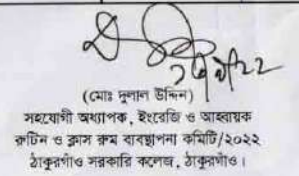 (মোঃ দুলাল উদ্দিন)
সহযোগী অধ্যাপক, ইংরেজি ও আহবায়ক
রুটিন ও ক্লাস রুম ব্যবস্থাপনা কমিটি/২০২২
ঠাকুরগাঁও সরকারি কলেজ, ঠাকুরগাঁও।